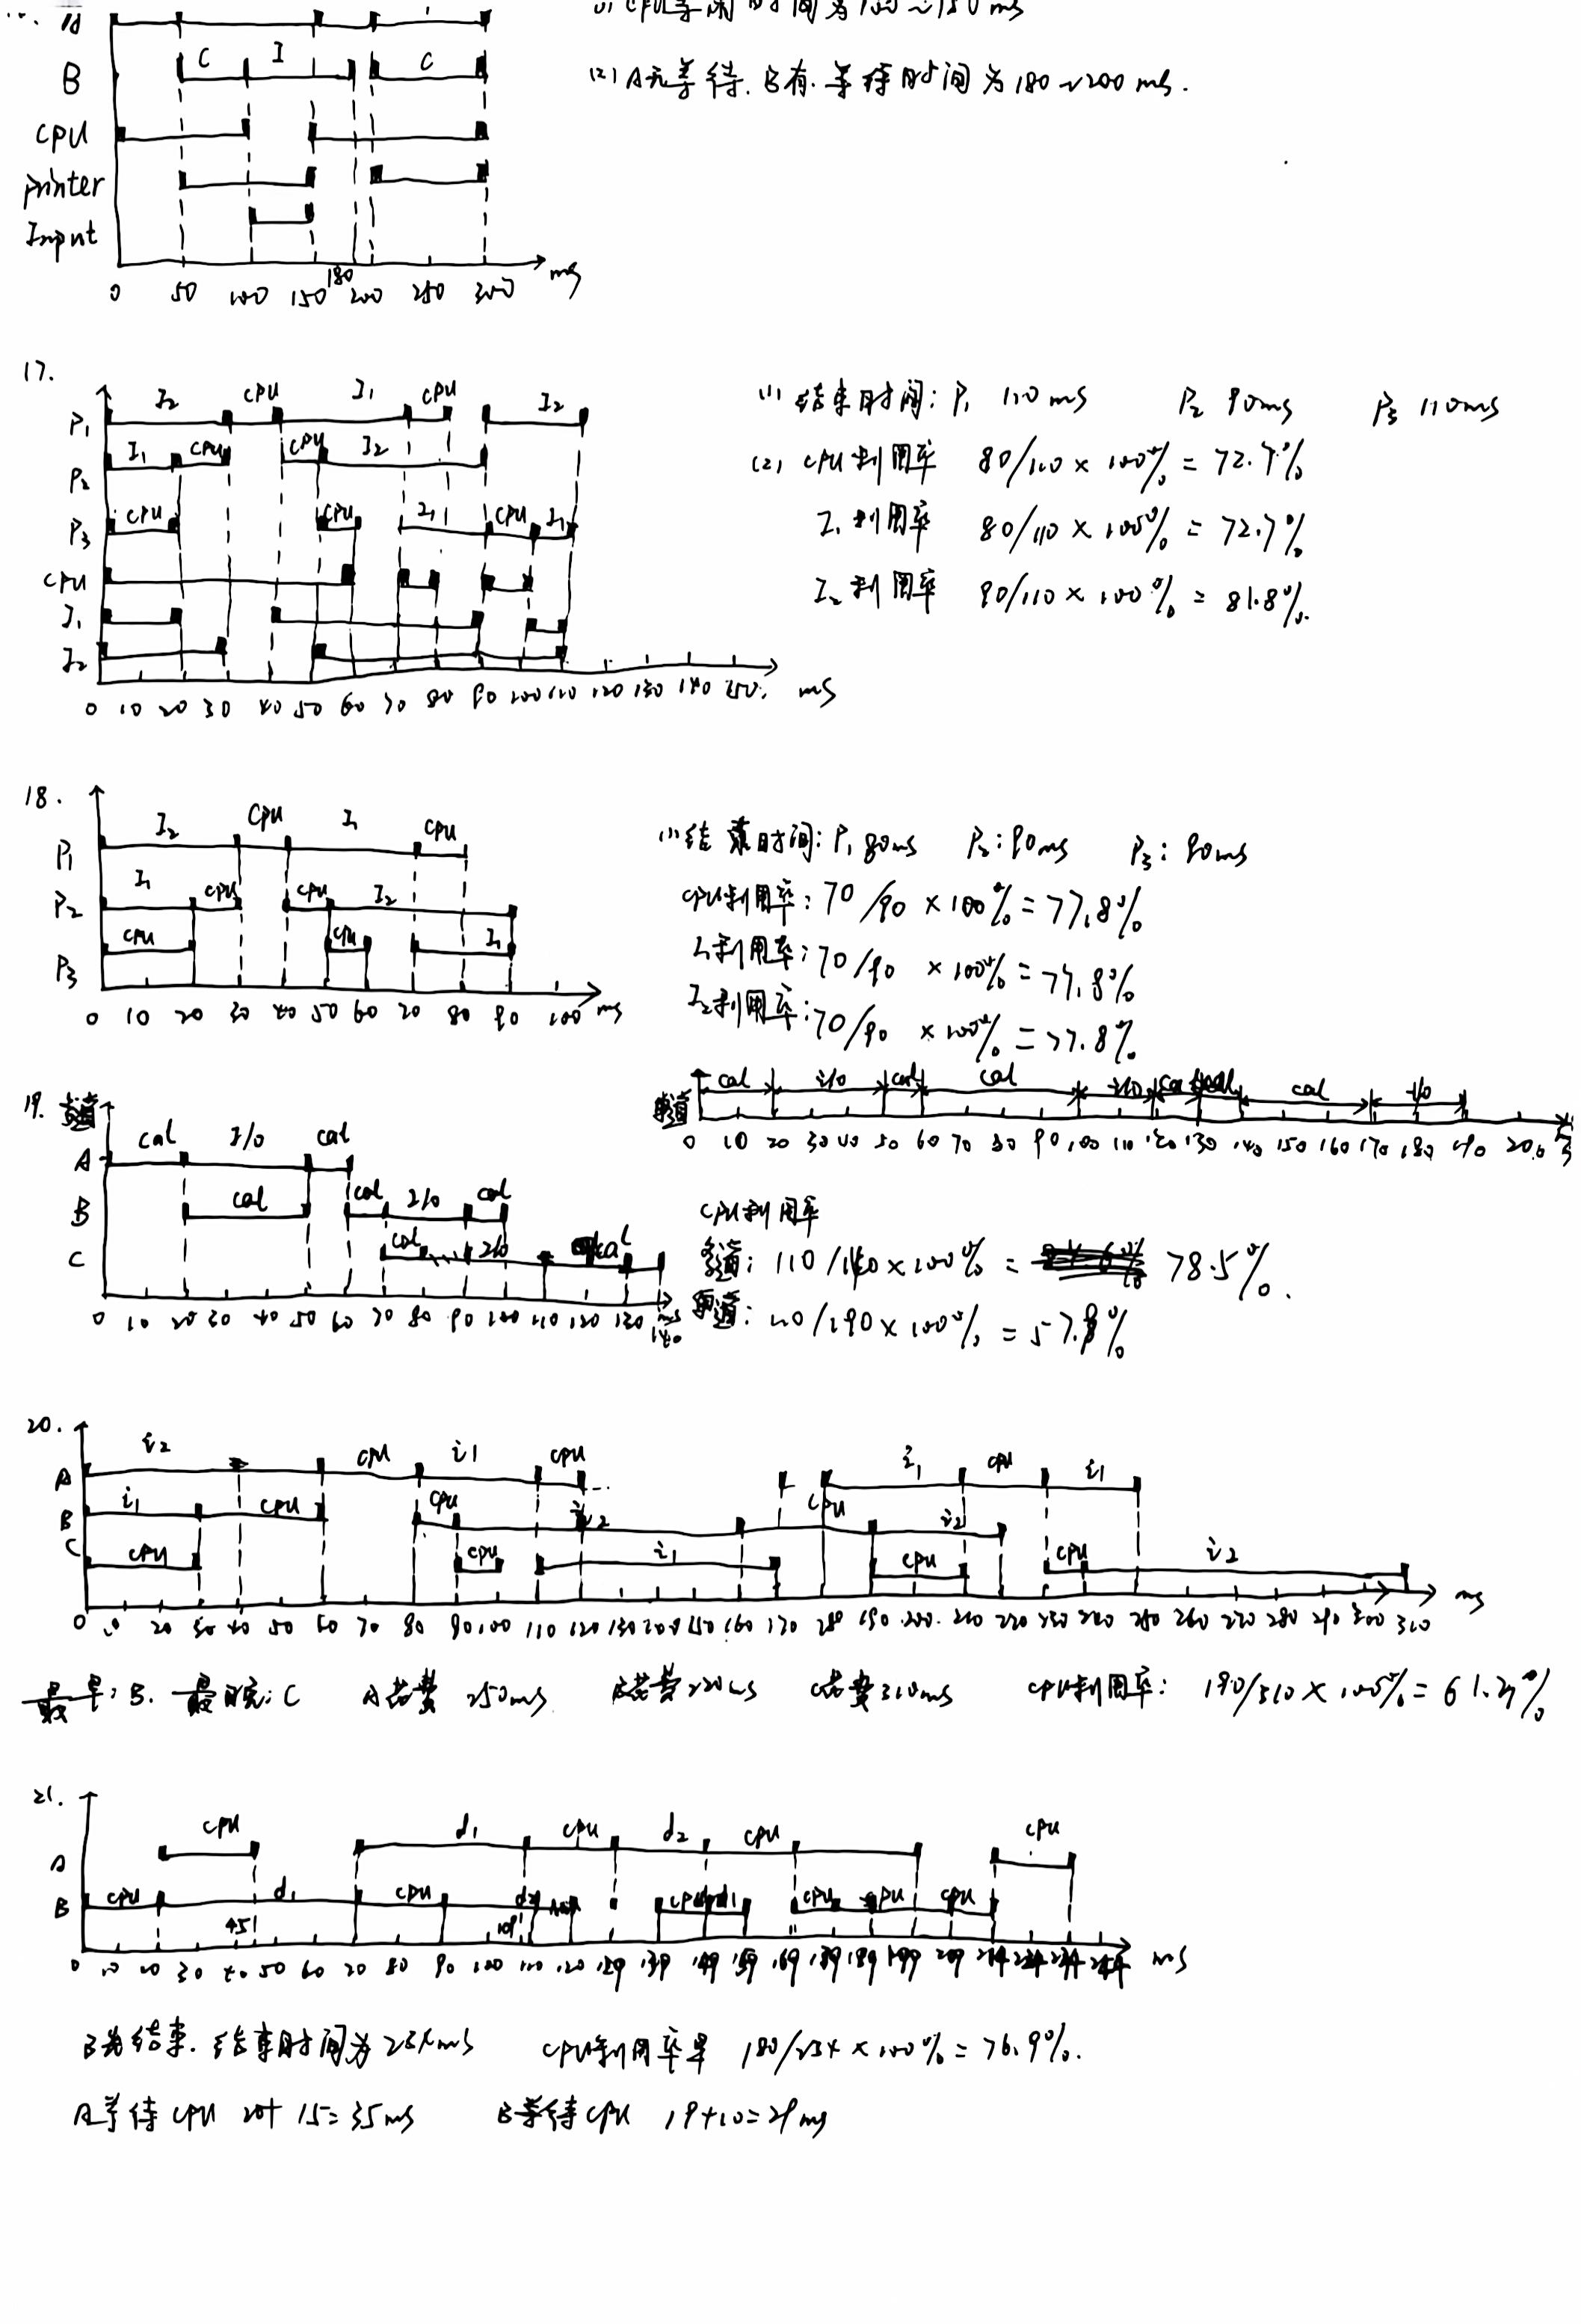 A
B C I C
CPU
Printer
Input
0 50 100 150 180 200 250 300 ms
(1) CPU等闲时间为100~150ms
(2) A无等待. B有. 等待时间为180~200ms.
17.
P1 I2 CPU I1 CPU I2
P2 I1 CPU CPU I2
P3 CPU CPU I1 CPU I1
CPU
I1
I2
0 10 20 30 40 50 60 70 80 90 100 110 120 130 140 150. ms
(1) 结束时间: P1 110ms P2 90ms P3 110ms
(2) CPU利用率 80/110 × 100% = 72.7%
I1利用率 80/110 × 100% = 72.7%
I2利用率 90/110 × 100% = 81.8%.
18.
P1 I2 CPU I1 CPU
P2 I1 CPU CPU I2
P3 CPU CPU I1
0 10 20 30 40 50 60 70 80 90 100 ms
(1) 结束时间: P1 80ms P2: 90ms P3: 90ms
CPU利用率: 70/90 × 100% = 77.8%
I1利用率: 70/90 × 100% = 77.8%
I2利用率: 70/90 × 100% = 77.8%
19. 多道
A cal I/O cal
B cal cal I/O cal
C cal I/O cal
0 10 20 30 40 50 60 70 80 90 100 110 120 130 140 ms
单道 cal I/O cal cal I/O cal cal cal I/O
0 10 20 30 40 50 60 70 80 90 100 110 120 130 140 150 160 170 180 190 200
CPU利用率
多道: 110/140 × 100% = 78.5%.
单道: 110/190 × 100% = 57.8%
20.
A i2 CPU i1 CPU i1 CPU i1
B i1 CPU CPU i2 CPU i2
C CPU CPU i1 CPU CPU i2
0 10 20 30 40 50 60 70 80 90 100 110 120 130 140 150 160 170 180 190 200 210 220 230 240 250 260 270 280 290 300 310 ms
最早: B. 最晚: C A花费 250ms B花费 220ms C花费 310ms CPU利用率: 190/310 × 100% = 61.29%
21.
A CPU d1 CPU d2 CPU CPU
B CPU d1 CPU d2 CPU d1 CPU CPU CPU
45 109
0 10 20 30 40 50 60 70 80 90 100 110 120 129 139 149 159 169 179 189 199 209 214 224 234 244 ms
B先结束. 结束时间为234ms CPU利用率是 180/234 × 100% = 76.9%.
A等待CPU 20+15=35ms B等待CPU 19+10=29ms